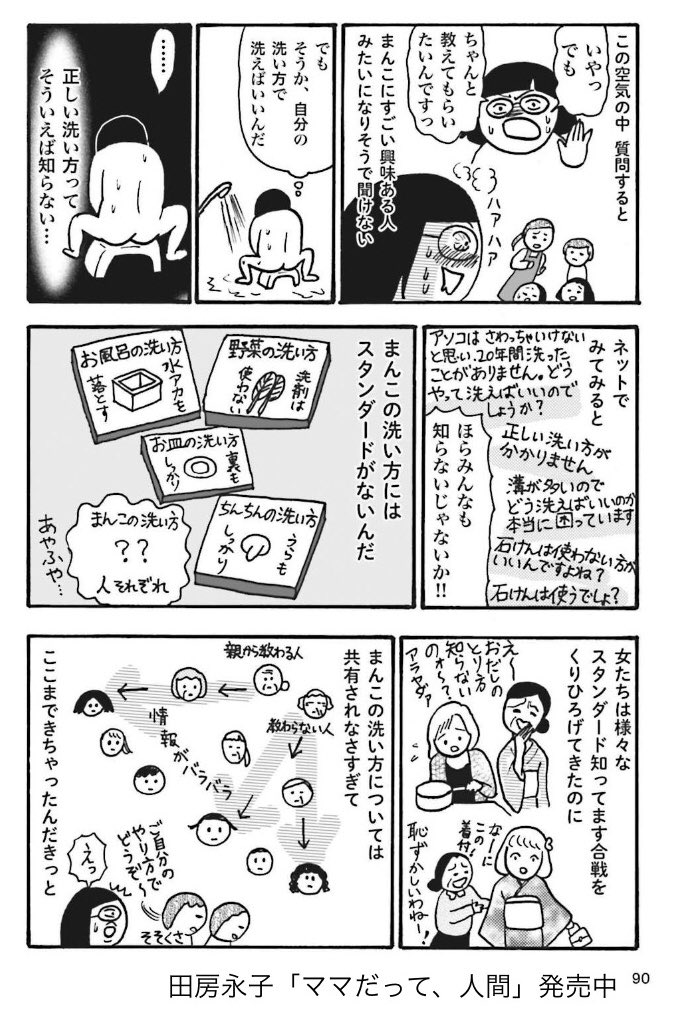 この空気の中 質問すると
いやっ
でも
ちゃんと
教えてもらい
たいんですっ
まんこにすごい興味ある人
みたいになりそうで聞けない
ハァハァ
でも
そうか、自分の
洗い方で
洗えばいいんだ
……
正しい洗い方って
そういえば知らない…
ネットで
みてみると
アソコはさわっちゃいけない
と思い、20年間洗った
ことがありません。どう
やって洗えばいいので
しょうか?
正しい洗い方が
分かりません
溝が多いので
どう洗えばいいのか
本当に困っています
石けんは使わない方が
いいんですよね?
石けんは使うでしょ?
ほらみんなも
知らないじゃないか!!
まんこの洗い方には
スタンダードがないんだ
野菜の洗い方
洗剤は
使わない
お風呂の洗い方
水アカを
落とす
お皿の洗い方
裏も
しっかり
ちんちんの洗い方
うらも
しっかり
まんこの洗い方
??
人それぞれ
あやふや…
女たちは様々な
スタンダード知ってます合戦を
くりひろげてきたのに
え〜
おだしの
とり方
知らない
のォ〜?
アラヤダァ
なーに
この
着付!
恥ずかしいわねー!
まんこの洗い方については
共有されなさすぎて
親から教わる人
教わらない人
情報が
バラバラ
ここまできちゃったんだきっと
ご自分の
やり方で
どうぞ〜
えっ
そそくさ
90
田房永子「ママだって、人間」発売中